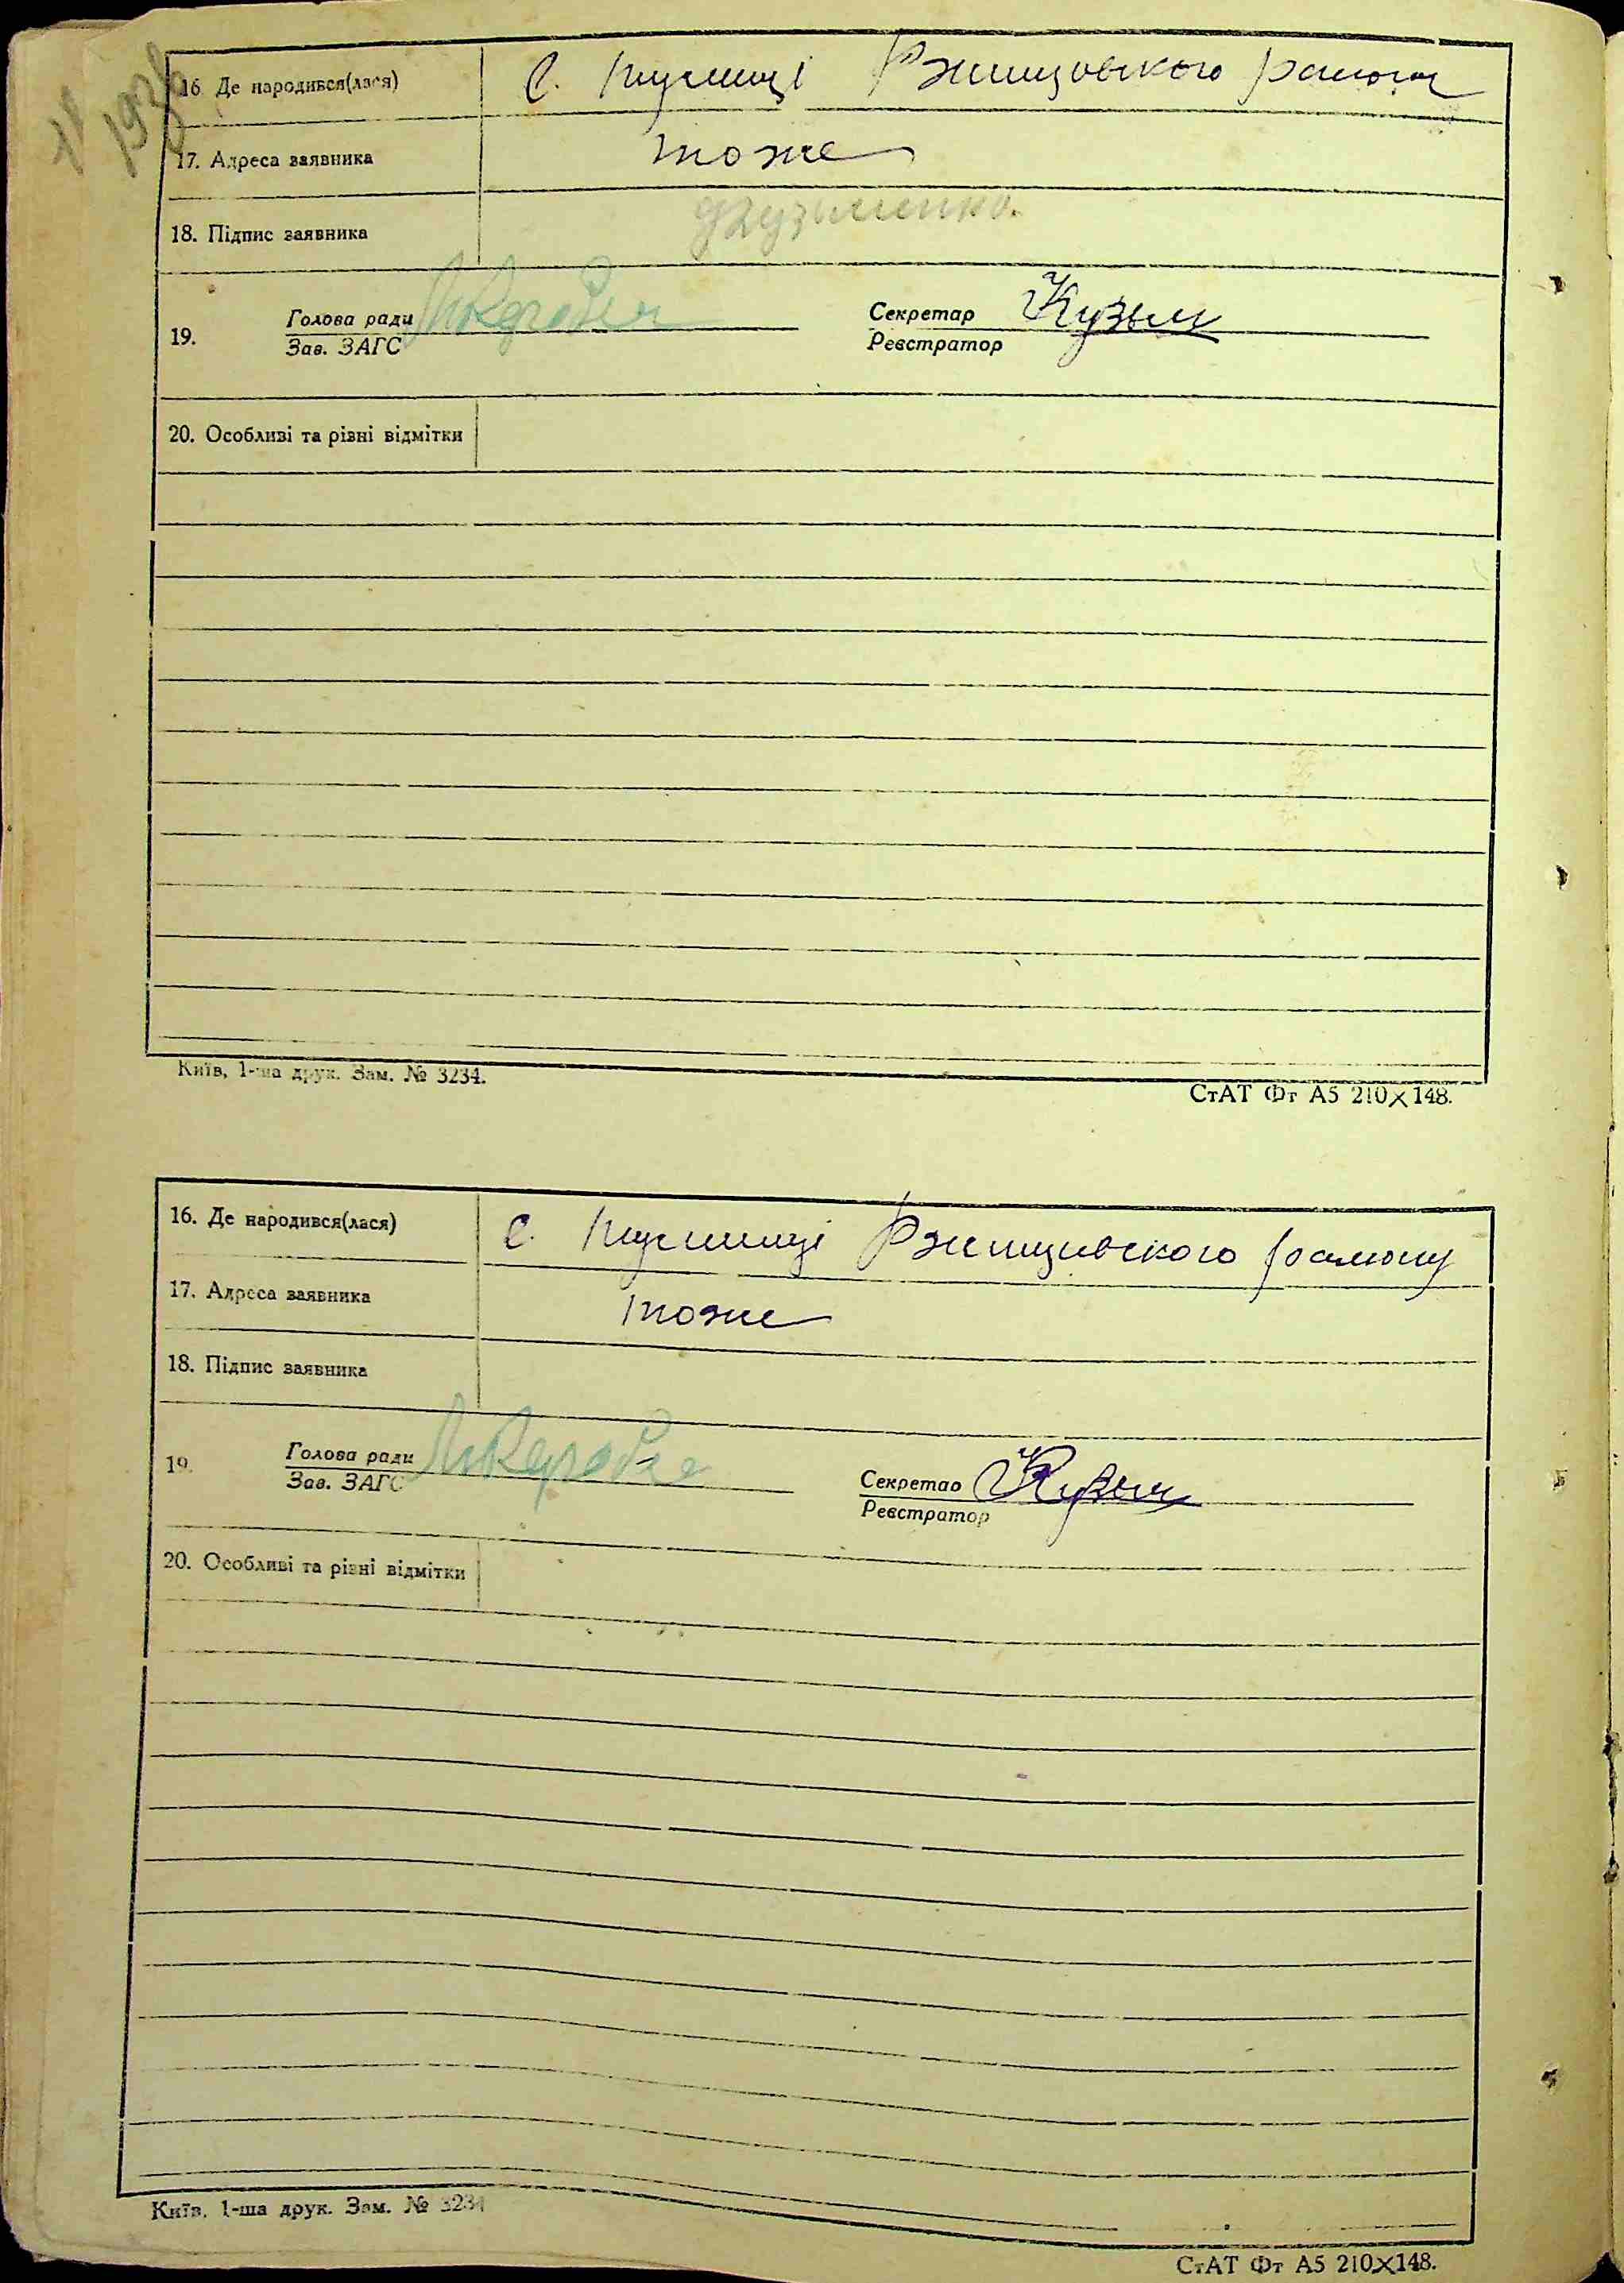 1936
16. Де народився(лася) с. Пушинці Ржищивского района
17. Адреса заявника тоже
18. Підпис заявника Кузьменко.
19. Голова ради Секретар Кузьм
Зав. ЗАГС Реєстратор
20. Особливі та різні відмітки
Київ, 1-ша друк. Зам. № 3234.
СтАТ Фт А5 210×148.
16. Де народився(лася) с. Ржищивского району
17. Адреса заявника тоже
18. Підпис заявника
19. Голова ради Секретар Кузьм
Зав. ЗАГС Реєстратор
20. Особливі та різні відмітки
Київ, 1-ша друк. Зам. № 3234
СтАТ Фт А5 210×148.